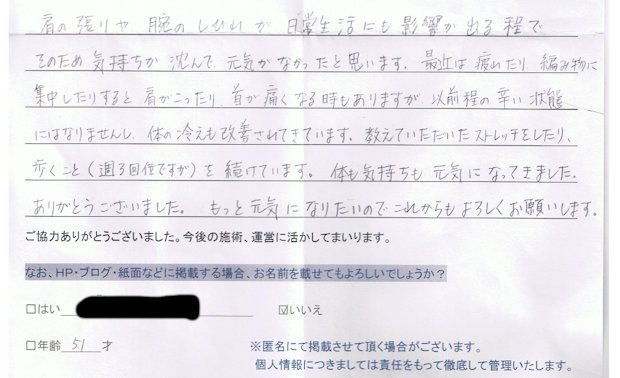 肩の張りや 腕のしびれが 日常生活にも影響が出る程で
そのため気持ちが沈んで、元気がなかったと思います。最近は疲れたり、編み物に
集中したりすると肩がこったり、首が痛くなる時もありますが、以前程の辛い状態
にはなりませんし、体の冷えも改善されてきています。教えていただいたストレッチをしたり、
歩くこと(週3回位ですが)を続けています。体も気持ちも元気になってきました。
ありがとうございました。もっと元気になりたいのでこれからもよろしくお願いします。
ご協力ありがとうございました。今後の施術、運営に活かしてまいります。
なお、HP・ブログ・紙面などに掲載する場合、お名前を載せてもよろしいでしょうか?
□はい ☑いいえ
□年齢 51 才 ※匿名にて掲載させて頂く場合がございます。
個人情報につきましては責任をもって徹底して管理いたします。